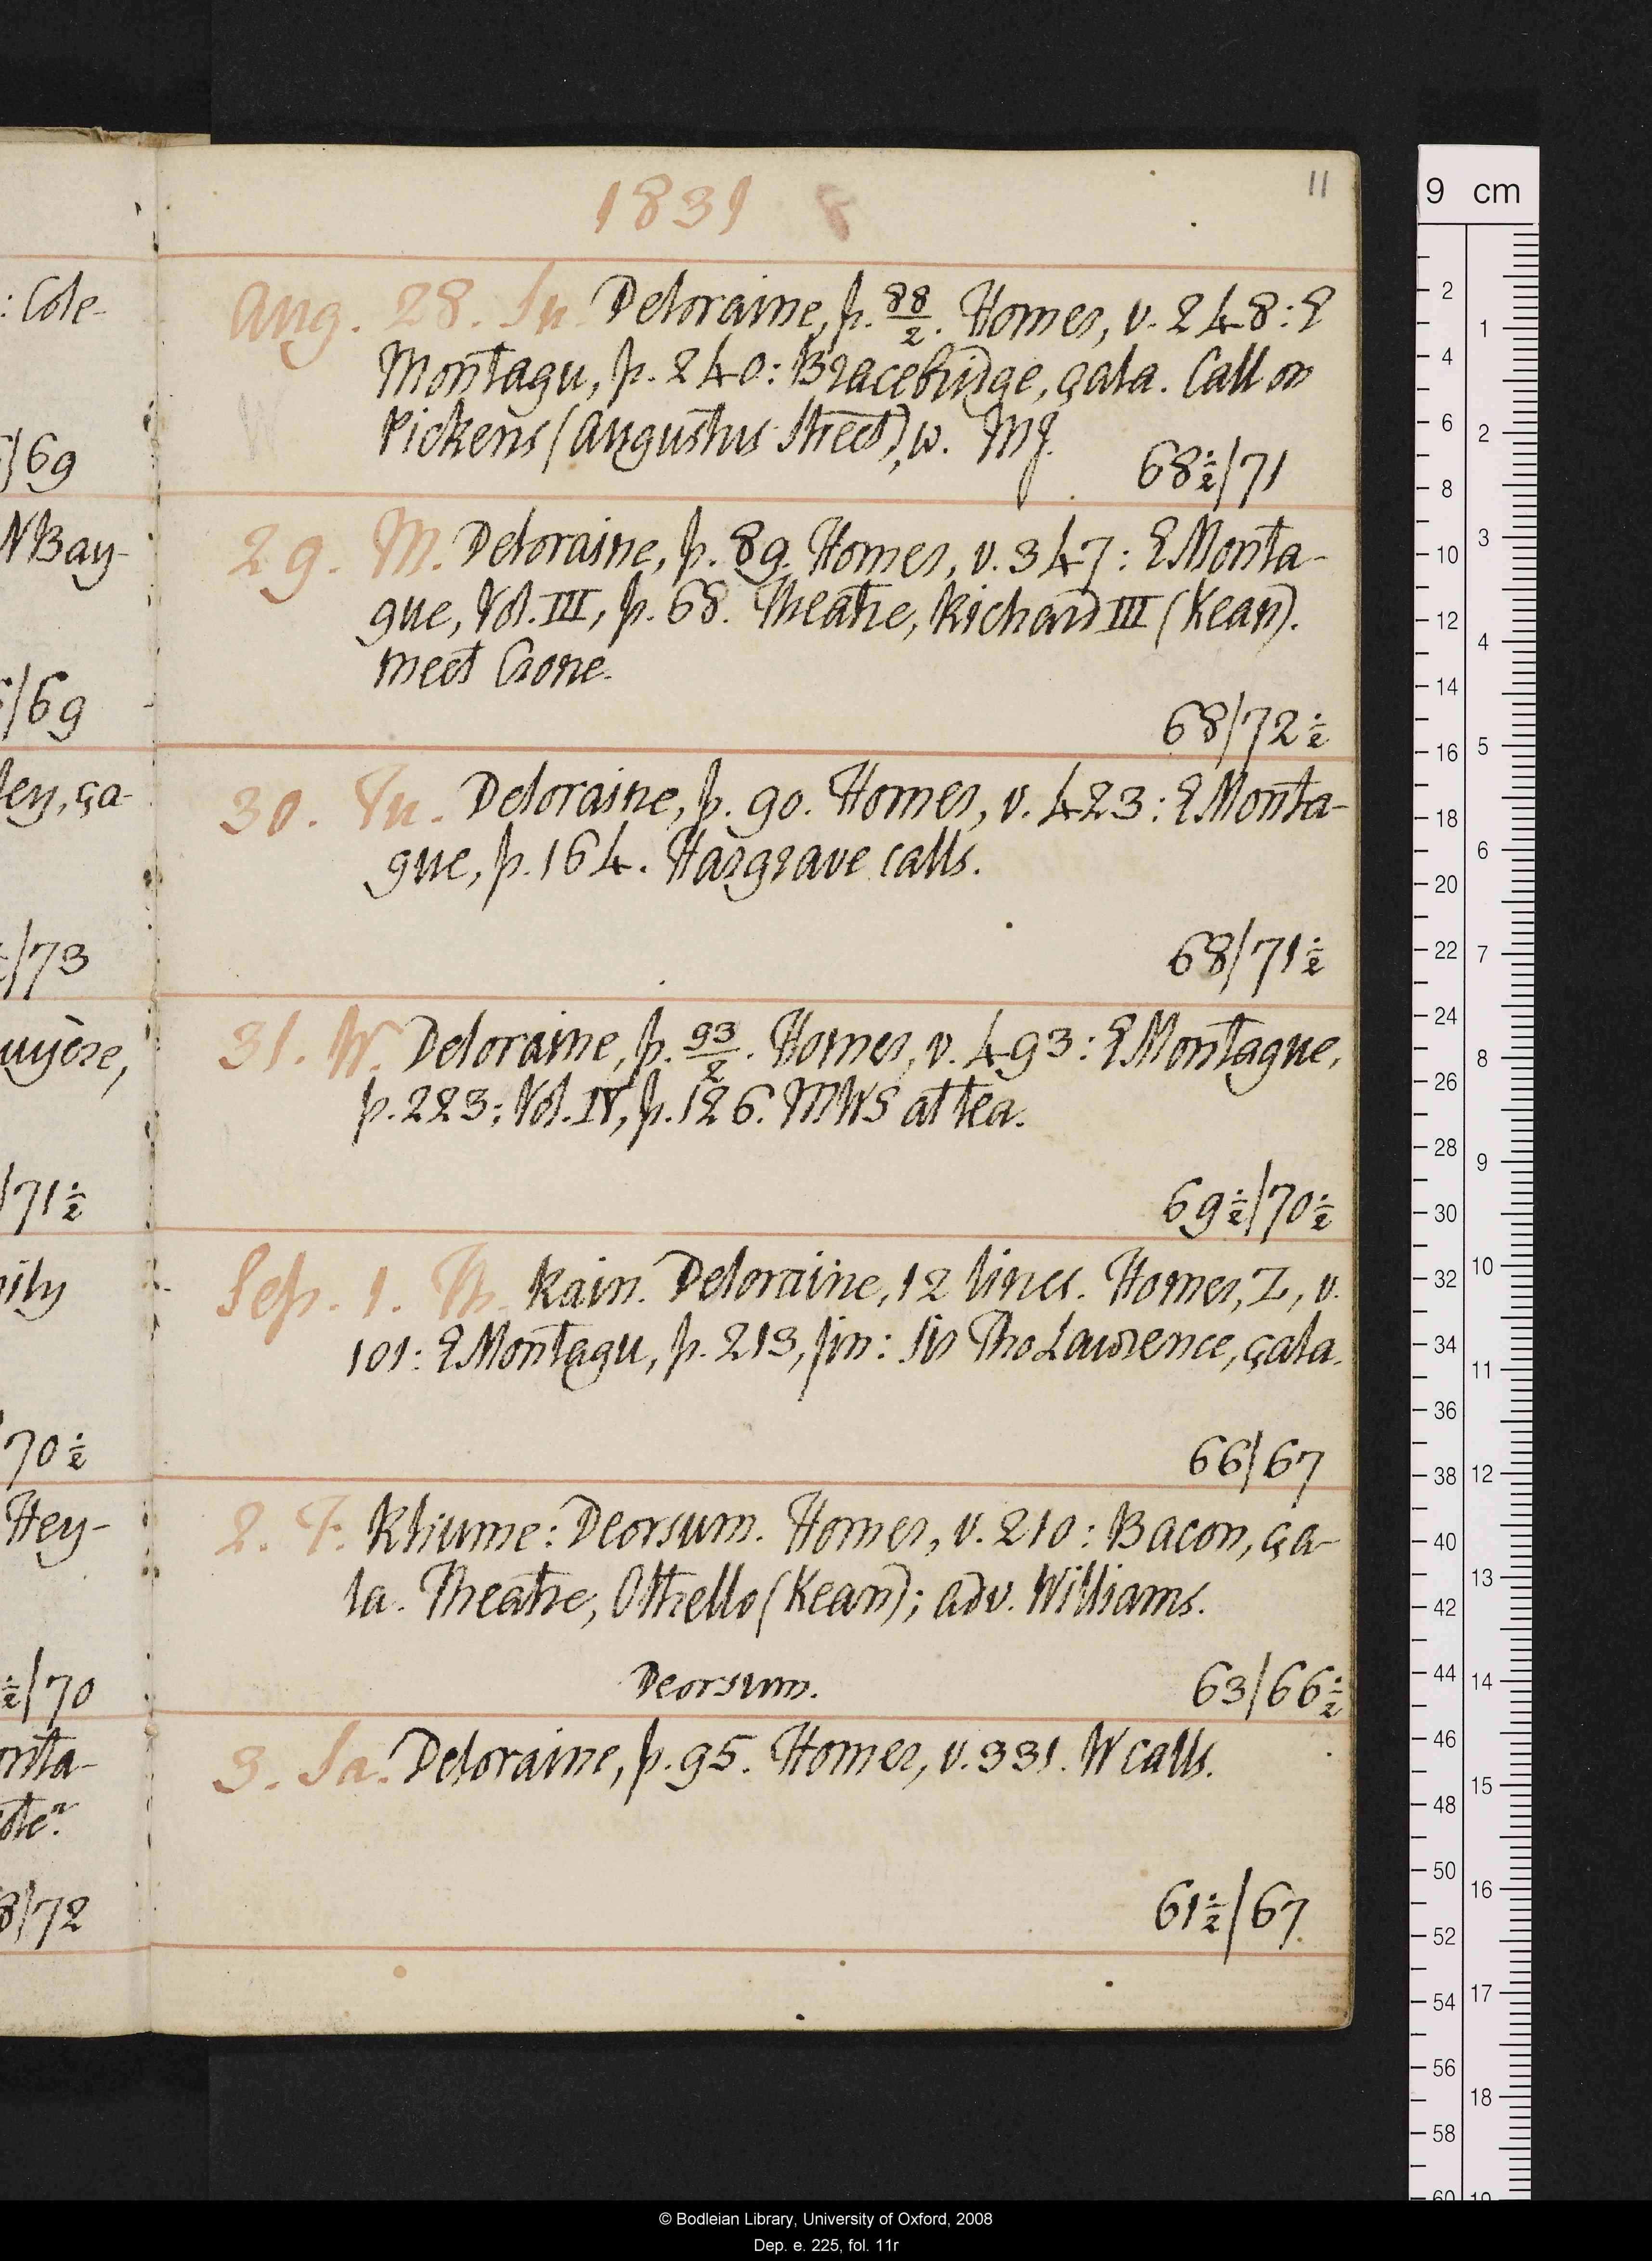 1831
11
Aug. 28. Su. Deloraine, p. 88/2. Homer, v. 248: E
Montagu, p. 240: Bracebridge, çala. Call on
Pickens (Augustus Street), w. MJ.
68½/71
29. M. Deloraine, p. 89. Homer, v. 347: E Monta-
gue, Vol. III, p. 68. Theatre, Richard III (Kean).
meet Crone.
68/72½
30. Tu. Deloraine, p. 90. Homer, v. 423: E Monta-
gue, p. 164. Hargrave calls.
68/71½
31. W. Deloraine, p. 93/2. Homer, v. 493: E Montague,
p. 223; Vol. IV, p. 126. MWS at tea.
69½/70½
Sep. 1. Th. Rain. Deloraine, 12 lines. Homer, Z, v.
101: E Montagu, p. 213, fin: Sir Tho Lawrence, çala.
66/67
2. F. Rhume: Deorsum. Homer, v. 210: Bacon, ça-
la. Theatre, Othello (Kean); adv. Williams.
Deorsum.
63/66½
3. Sa. Deloraine, p. 95. Homer, v. 331. W calls.
61½/67.
: Cole-
/69
N Bay-
/69
ley, ça-
/73
uyère,
/71½
ily
70½
Hey-
½/70
onta-
ote".
8/72
9 cm
2
4
6
8
10
12
14
16
18
20
22
24
26
28
30
32
34
36
38
40
42
44
46
48
50
52
54
56
58
60
1
2
3
4
5
6
7
8
9
10
11
12
13
14
15
16
17
18
19
© Bodleian Library, University of Oxford, 2008
Dep. e. 225, fol. 11r